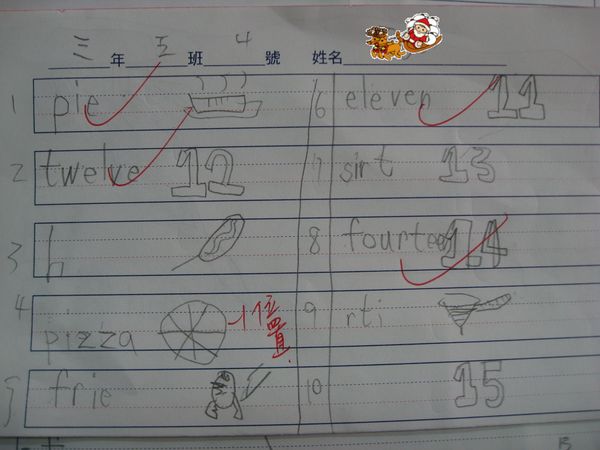 三年五班4號 姓名
1 pie
2 twelve 12
3 h
4 pizza -1 位置
5 frie
6 eleven 11
7 sirt 13
8 fourteen 14
9 rti
10 15